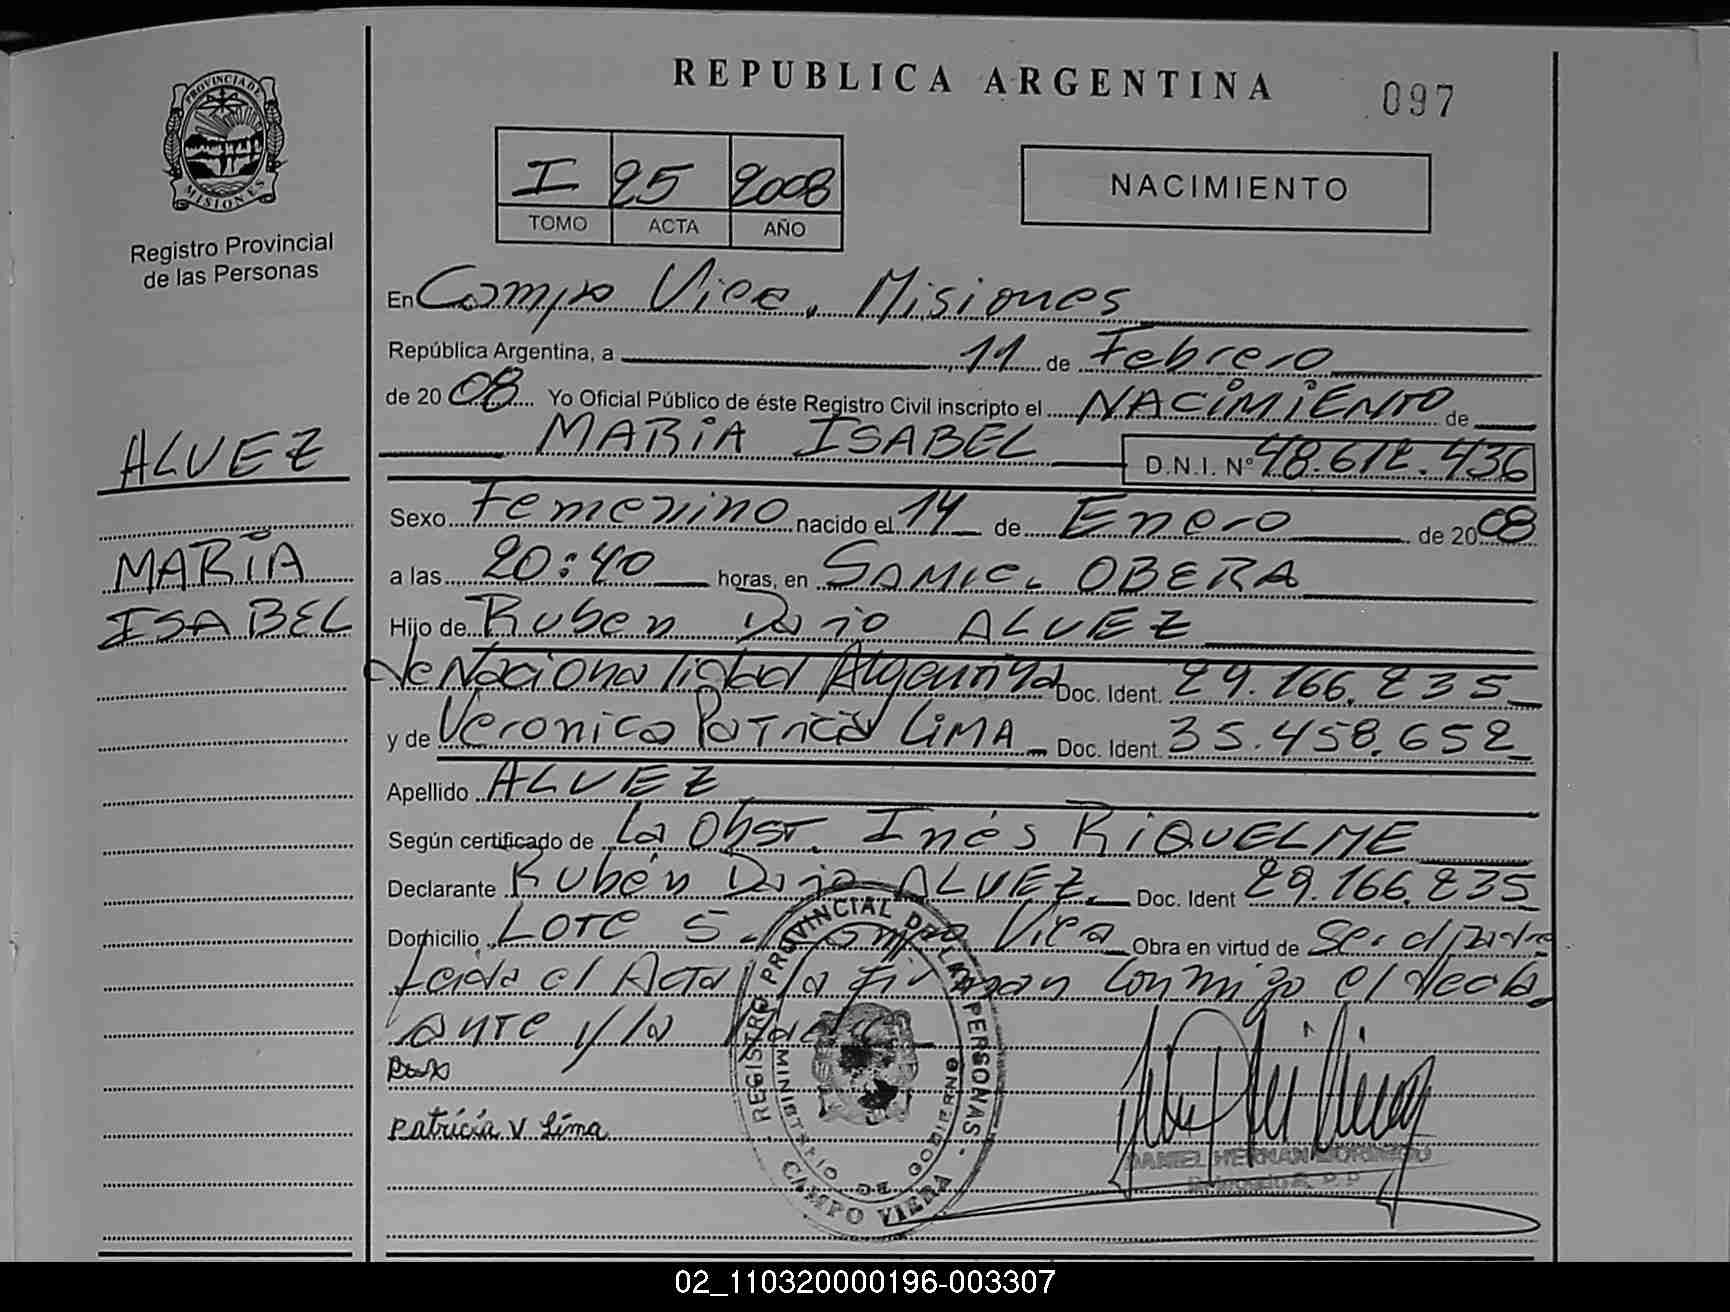 REPUBLICA ARGENTINA
097
PROVINCIA DE
MISIONES
Registro Provincial
de las Personas
I 25 2008
TOMO ACTA AÑO
NACIMIENTO
En Campo Viera, Misiones
República Argentina, a 11 de Febrero
de 2008 Yo Oficial Público de éste Registro Civil inscripto el NACIMIENTO de
MARIA ISABEL D.N.I. Nº 48.612.436
ALVEZ
MARIA
ISABEL
Sexo Femenino nacido el 14 de Enero de 2008
a las 20:40 horas, en SAMIC. OBERA
Hijo de Ruben Dario ALVEZ
de Nacionalidad Argentina Doc. Ident. 29.166.235
y de Veronica Patricia LIMA Doc. Ident. 35.458.652
Apellido ALVEZ
Según certificado de La Obst. Inés RIQUELME
Declarante Rubén Dario ALVEZ Doc. Ident 29.166.235
Domicilio LOTE 5. Campo Viera Obra en virtud de Ser el padre
Leida el Acta la Firman conmigo el decla
ante y la
Patricia V Lima
REGISTRO PROVINCIAL DE LAS PERSONAS
MINISTERIO DE GOBIERNO
CAMPO VIERA
DANIEL HERNAN
02_110320000196-003307